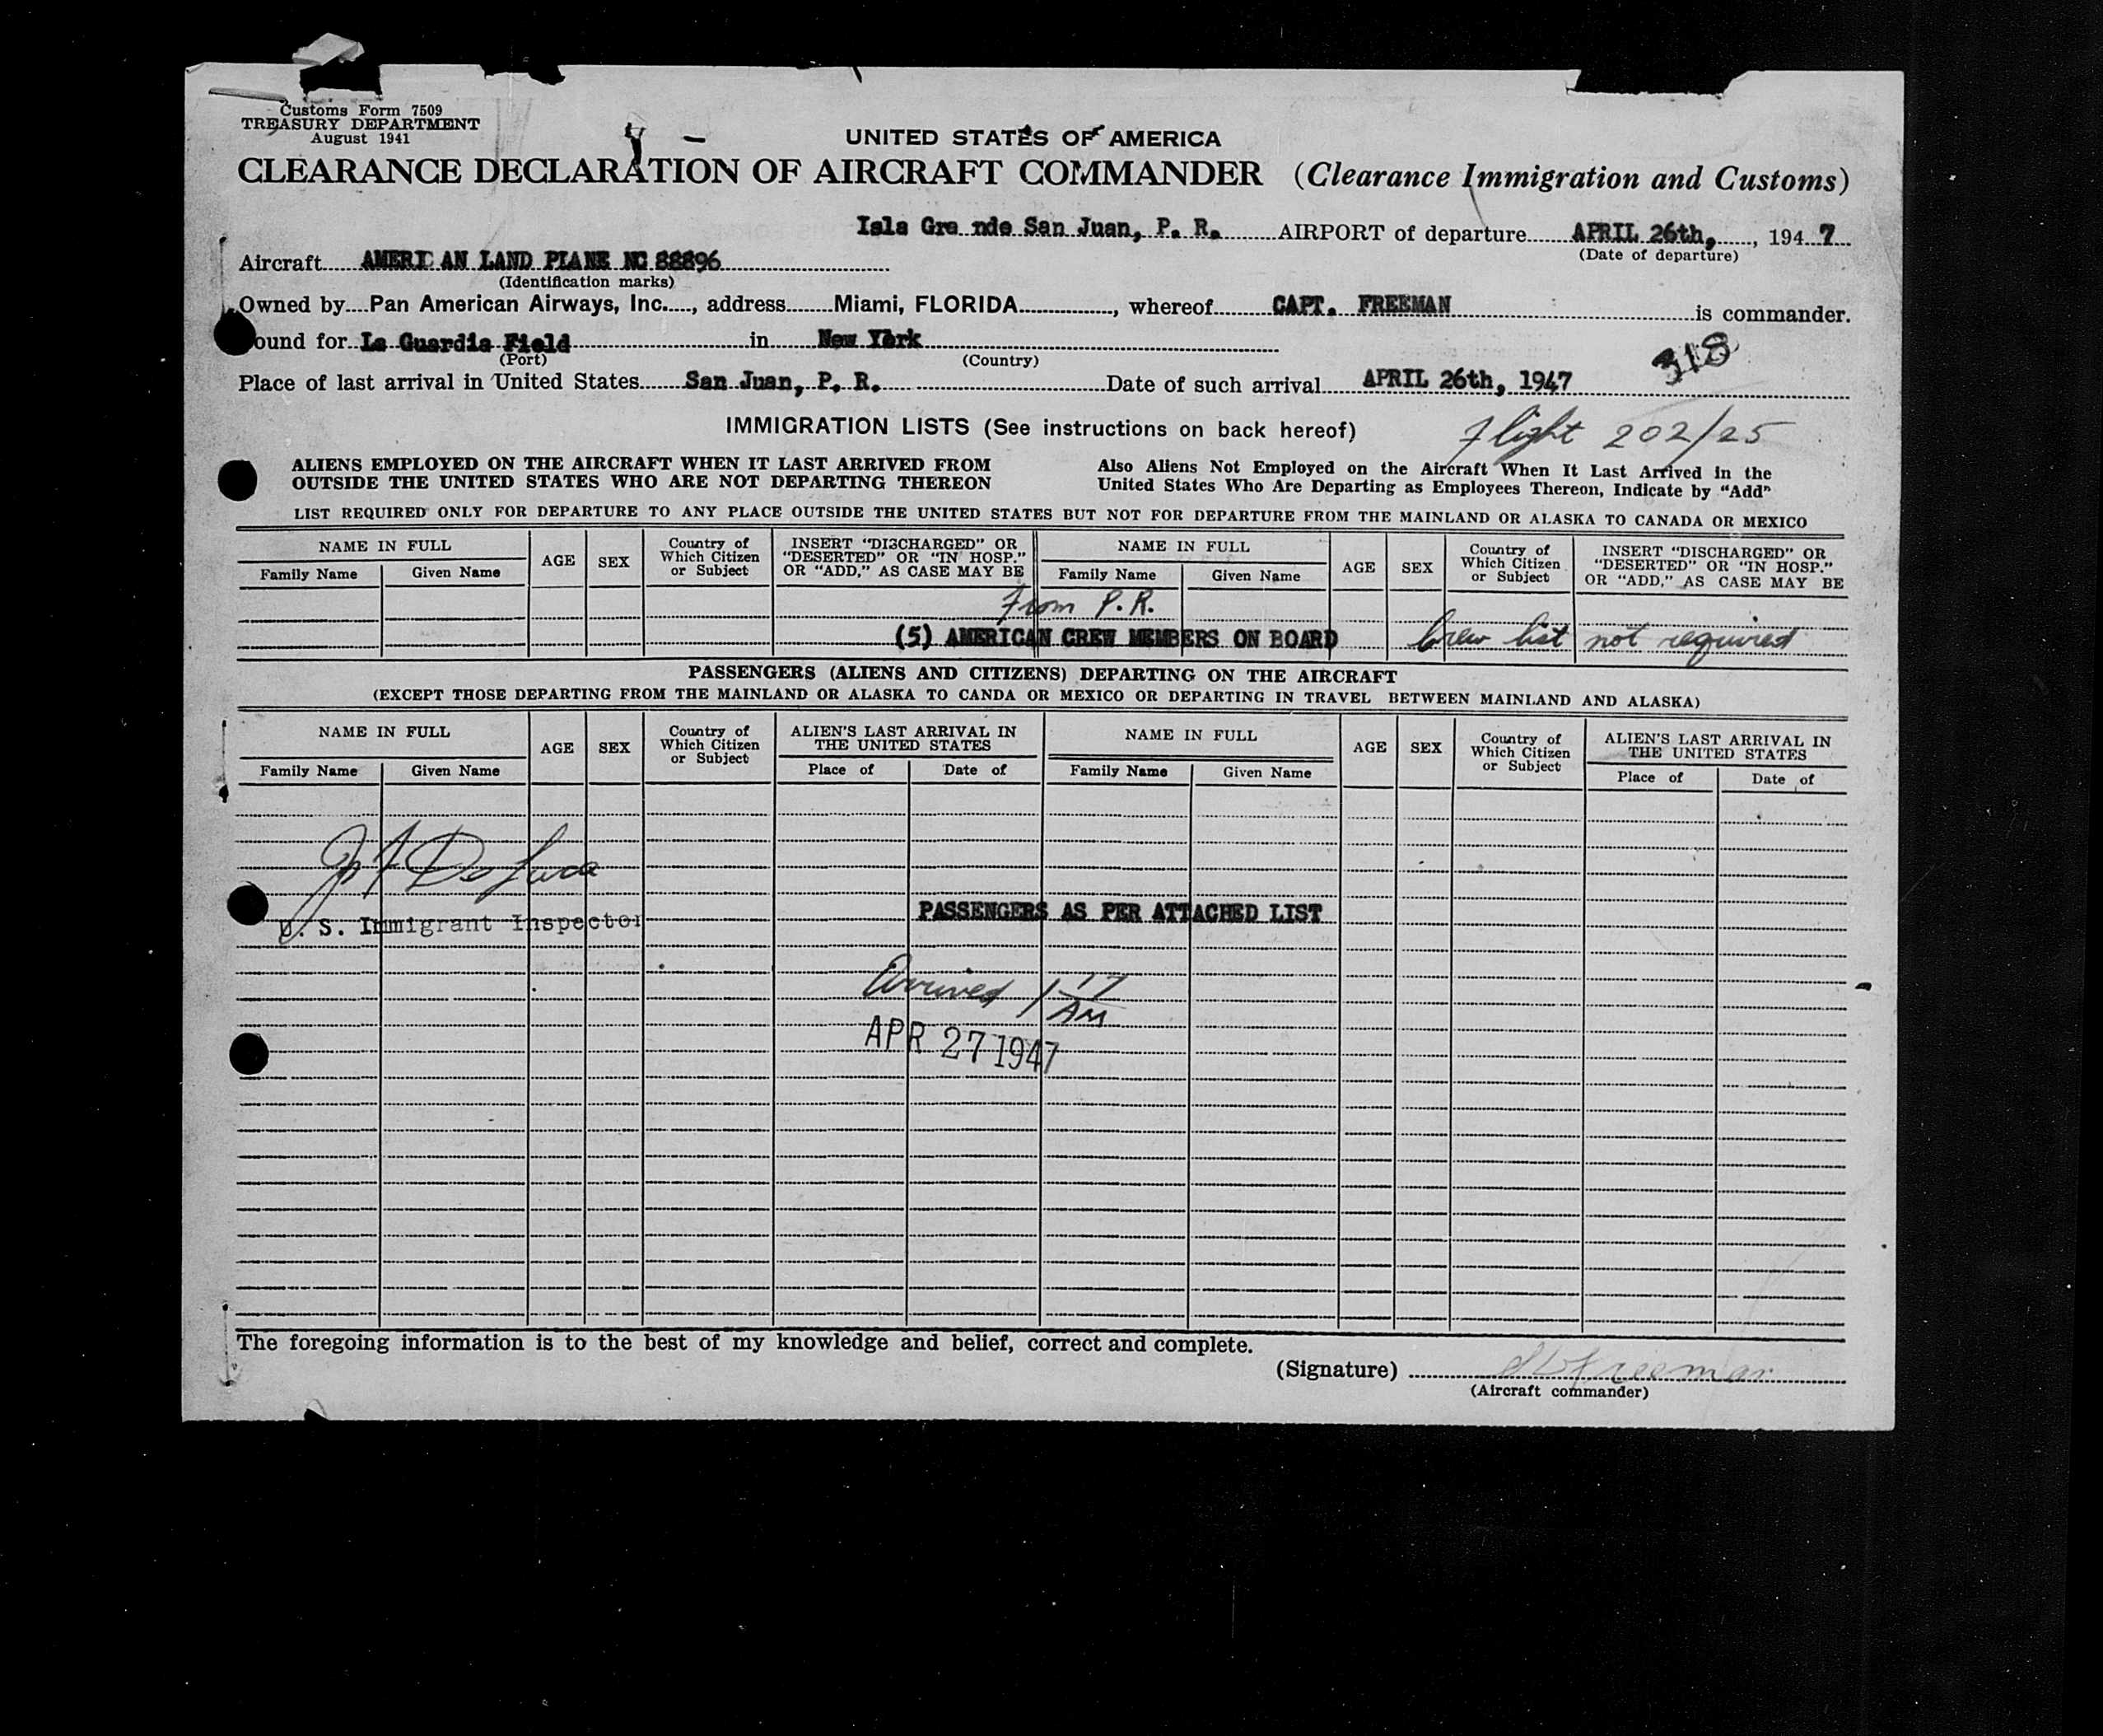 Customs Form 7509
TREASURY DEPARTMENT
August 1941
UNITED STATES OF AMERICA
CLEARANCE DECLARATION OF AIRCRAFT COMMANDER (Clearance Immigration and Customs)
Isla Gra nde San Juan, P. R. AIRPORT of departure APRIL 26th, , 194 7
(Date of departure)
Aircraft AMERICAN LAND PLANE NC 88896
(Identification marks)
Owned by Pan American Airways, Inc. , address Miami, FLORIDA , whereof CAPT. FREEMAN is commander.
ound for La Guardia Field in New York
(Port) (Country)
318
Place of last arrival in United States San Juan, P. R. Date of such arrival APRIL 26th, 1947
IMMIGRATION LISTS (See instructions on back hereof)
Flight 202/25
ALIENS EMPLOYED ON THE AIRCRAFT WHEN IT LAST ARRIVED FROM
OUTSIDE THE UNITED STATES WHO ARE NOT DEPARTING THEREON
Also Aliens Not Employed on the Aircraft When It Last Arrived in the
United States Who Are Departing as Employees Thereon, Indicate by “Add”
LIST REQUIRED ONLY FOR DEPARTURE TO ANY PLACE OUTSIDE THE UNITED STATES BUT NOT FOR DEPARTURE FROM THE MAINLAND OR ALASKA TO CANADA OR MEXICO
NAME IN FULL
Family Name Given Name
AGE
SEX
Country of
Which Citizen
or Subject
INSERT “DISCHARGED” OR
“DESERTED” OR “IN HOSP.”
OR “ADD,” AS CASE MAY BE
NAME IN FULL
Family Name Given Name
AGE
SEX
Country of
Which Citizen
or Subject
INSERT “DISCHARGED” OR
“DESERTED” OR “IN HOSP.”
OR “ADD,” AS CASE MAY BE
From P.R.
(5) AMERICAN CREW MEMBERS ON BOARD Crew list not required
PASSENGERS (ALIENS AND CITIZENS) DEPARTING ON THE AIRCRAFT
(EXCEPT THOSE DEPARTING FROM THE MAINLAND OR ALASKA TO CANDA OR MEXICO OR DEPARTING IN TRAVEL BETWEEN MAINLAND AND ALASKA)
NAME IN FULL
Family Name Given Name
AGE
SEX
Country of
Which Citizen
or Subject
ALIEN’S LAST ARRIVAL IN
THE UNITED STATES
Place of Date of
NAME IN FULL
Family Name Given Name
AGE
SEX
Country of
Which Citizen
or Subject
ALIEN’S LAST ARRIVAL IN
THE UNITED STATES
Place of Date of
De Luca
U. S. Immigrant Inspector
PASSENGERS AS PER ATTACHED LIST
Arrived 1 17
AM
APR 27 1947
The foregoing information is to the best of my knowledge and belief, correct and complete.
(Signature) Freeman
(Aircraft commander)